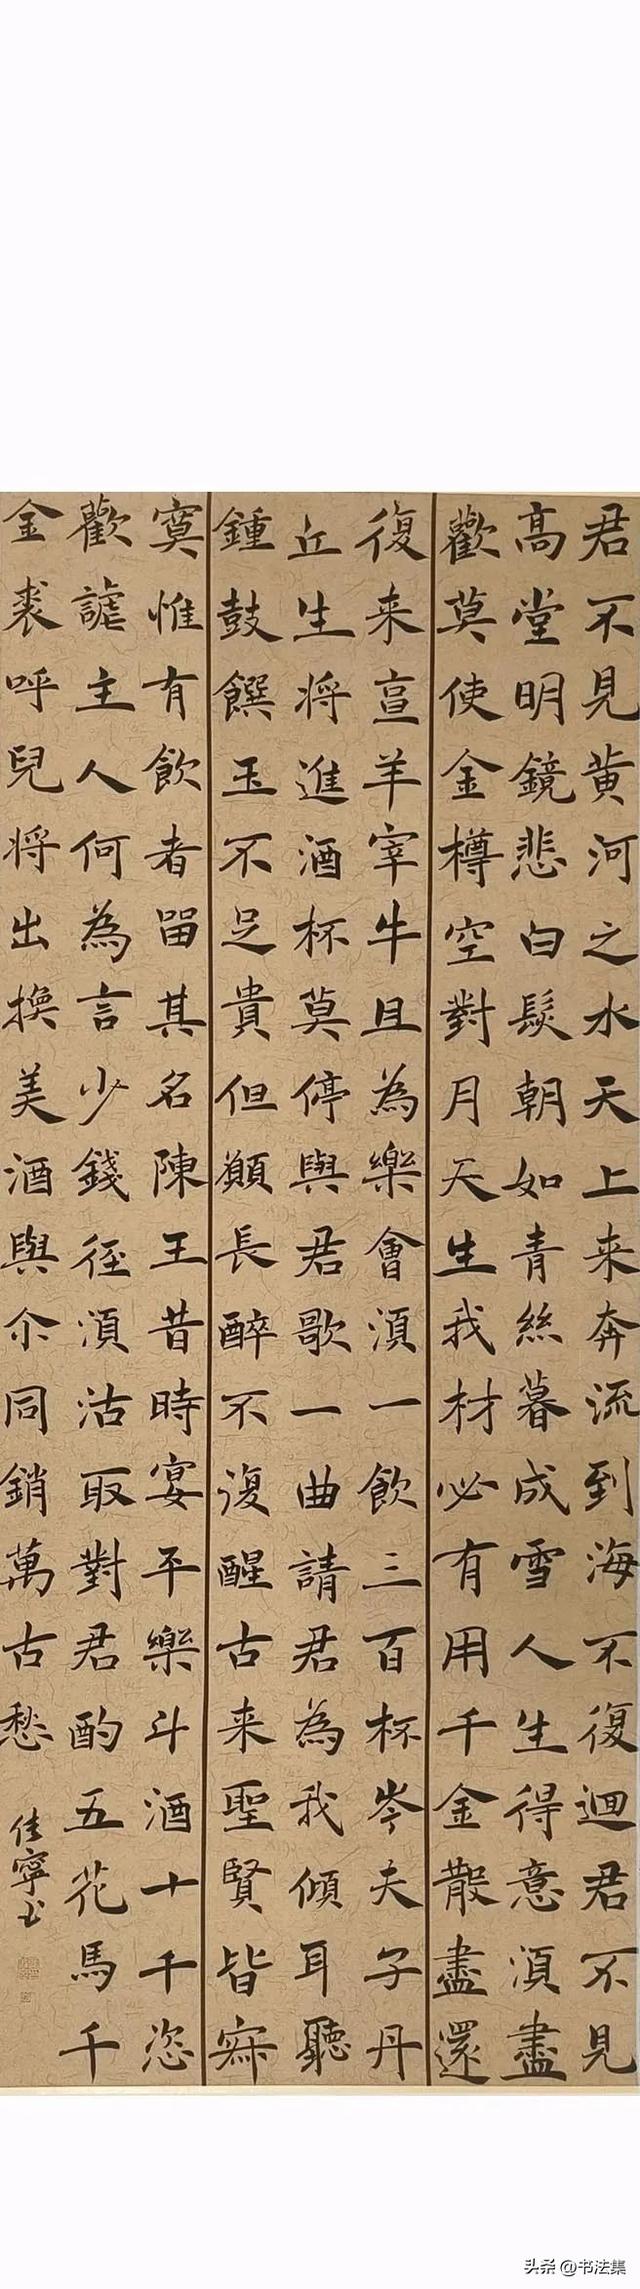 君不見黄河之水天上来奔流到海不復迴君不見
高堂明鏡悲白髮朝如青絲暮成雪人生得意須盡
歡莫使金樽空對月天生我材必有用千金散盡還
復来亯羊宰牛且為樂會須一飲三百杯岑夫子丹
丘生将進酒杯莫停與君歌一曲請君為我傾耳聽
鍾鼓饌玉不足貴但願長醉不復醒古来聖賢皆寂
寞惟有飲者留其名陳王昔時宴平樂斗酒十千恣
歡謔主人何為言少錢徑須沽取對君酌五花馬千
金裘呼兒将出換美酒與尒同銷萬古愁
佳寧书
头条 @书法集